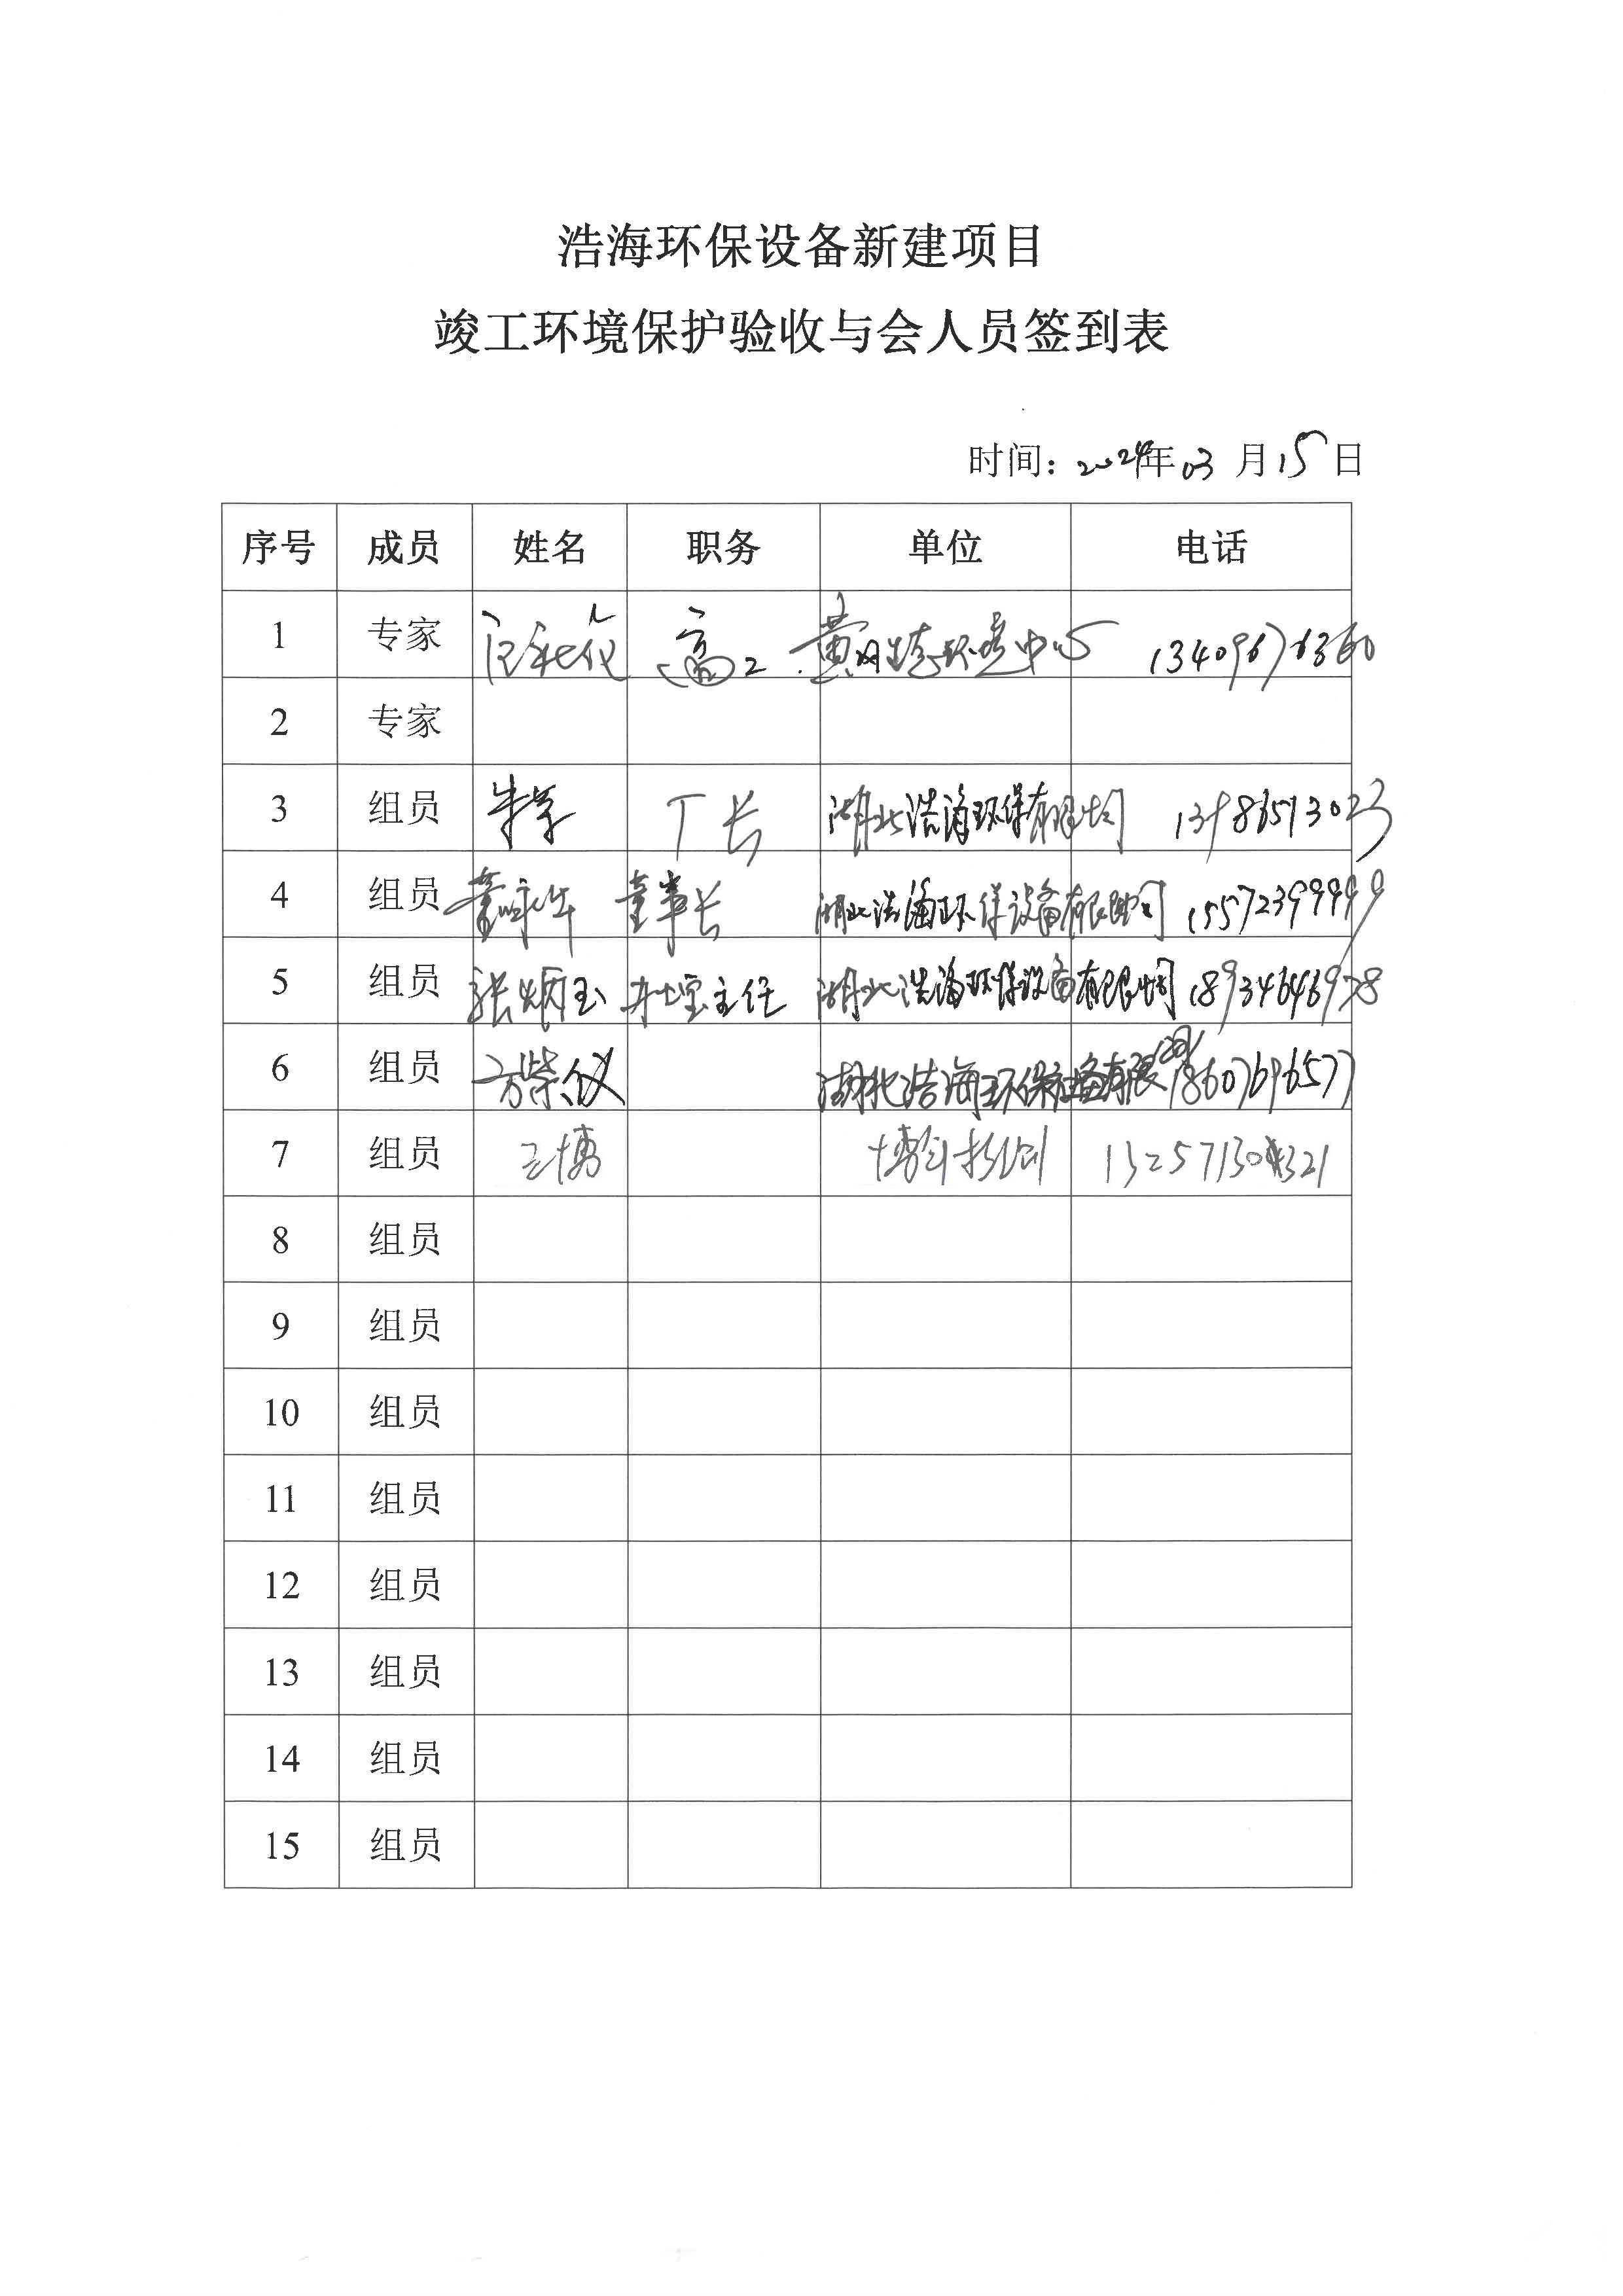 浩海环保设备新建项目
竣工环境保护验收与会人员签到表
时间：2024年03月15日
序号 成员 姓名 职务 单位 电话
1 专家 高工 13409676360
2 专家
3 组员 厂长 湖北浩海环保有限公司
4 组员 董事长 湖北浩海环保设备有限公司 15572399999
5 组员 张炳玉 办公室主任 湖北浩海环保设备有限公司 18934646978
6 组员 方荣仪 湖北浩海环保设备有限公司 18607696577
7 组员 王博
8 组员
9 组员
10 组员
11 组员
12 组员
13 组员
14 组员
15 组员